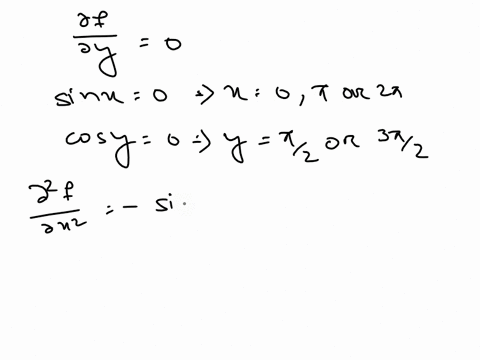 ∂f/∂y = 0
sinx = 0 => x = 0, π or 2π
cosy = 0 => y = π/2 or 3π/2
∂²f/∂x² = - si